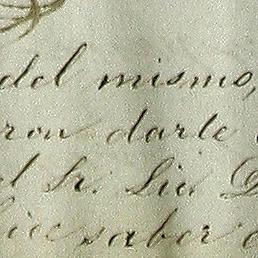 del mismo,
ron darle
el Sr. Lic D
saber